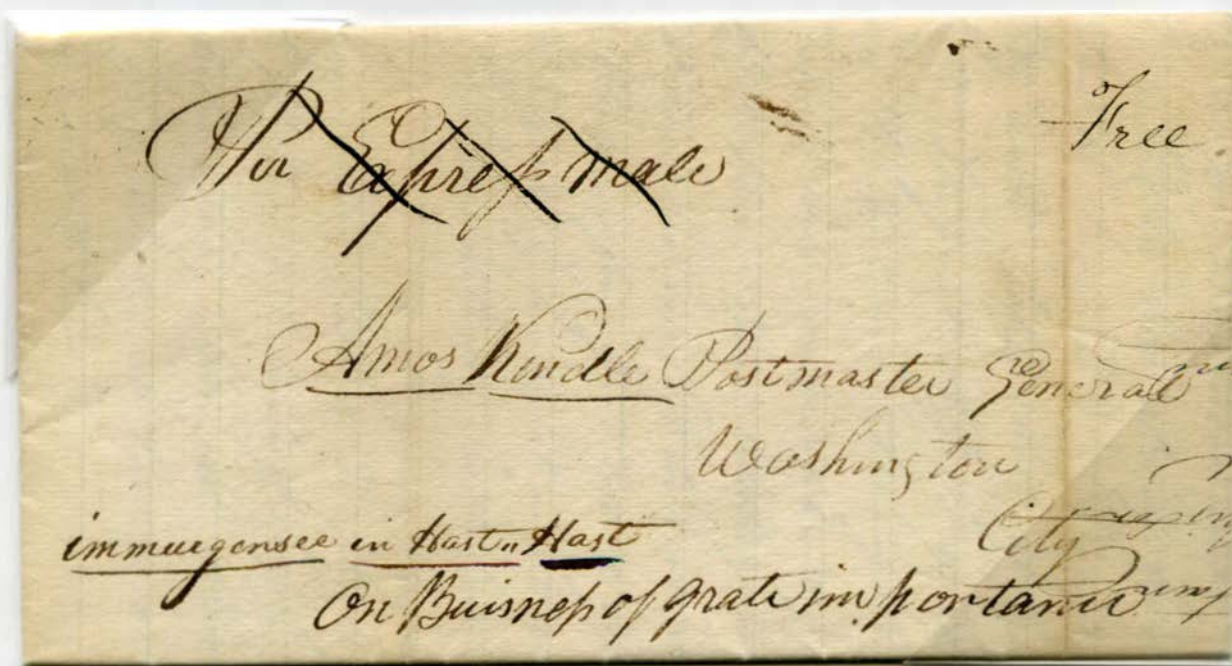 Free
Per Express Male
Amos Kindle Postmaster General
Washington
City
immurgensee in Hast " Hast
On Buisness of grate importance